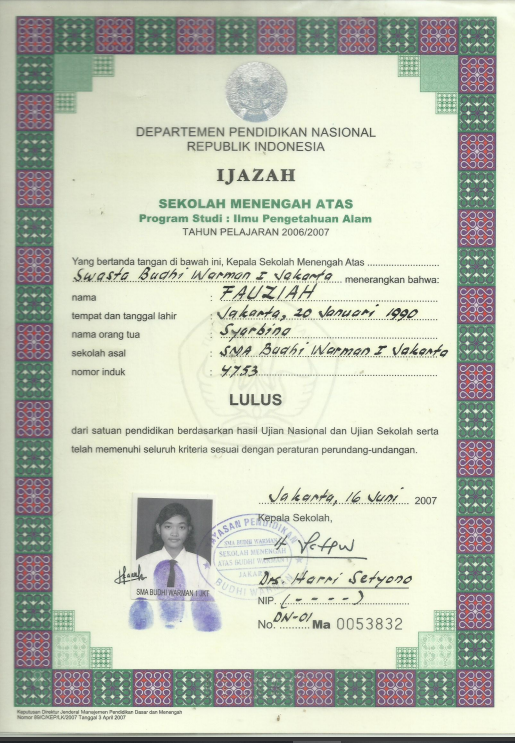 DEPARTEMEN PENDIDIKAN NASIONAL
REPUBLIK INDONESIA
IJAZAH
SEKOLAH MENENGAH ATAS
Program Studi : Ilmu Pengetahuan Alam
TAHUN PELAJARAN 2006/2007
Yang bertanda tangan di bawah ini, Kepala Sekolah Menengah Atas
Swasta Budhi Warman I Jakarta menerangkan bahwa:
nama : FAUZIAH
tempat dan tanggal lahir : Jakarta, 20 Januari 1990
nama orang tua : Syarbina
sekolah asal : SMA Budhi Warman I Jakarta
nomor induk : 4753
LULUS
dari satuan pendidikan berdasarkan hasil Ujian Nasional dan Ujian Sekolah serta
telah memenuhi seluruh kriteria sesuai dengan peraturan perundang-undangan.
Jakarta, 16 Juni 2007
Kepala Sekolah,
YAYASAN PENDIDIKAN
SMA BUDHI WARMAN
SEKOLAH MENENGAH
ATAS BUDHI WARMAN I
JAKARTA
BUDHI WARMAN
Drs. Harri Setyono
SMA BUDHI WARMAN 1 JKT
NIP. (- - - -)
No. DN-01 Ma 0053832
Keputusan Direktur Jenderal Manajemen Pendidikan Dasar dan Menengah
Nomor 99/C/KEP/LK/2007 Tanggal 3 April 2007